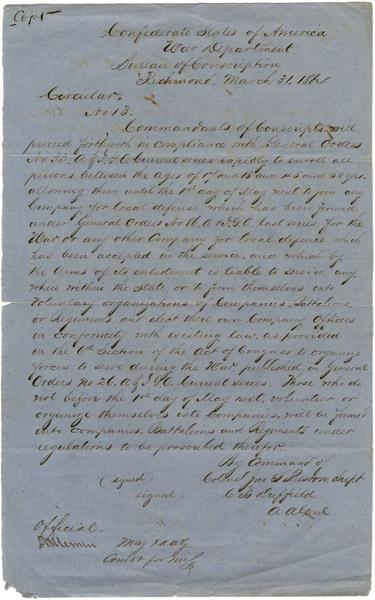 Copy
Confederate States of America
War Department
Bureau of Conscription
Richmond, March 31, 1864
Circular.
No 13.
Commandants of Conscripts will
proceed forthwith in compliance with General Orders
No 33. A & I.G.O. Current series rapidly to enroll all
persons between the ages of 17 and 18 and 45 and 50 yrs.
allowing them until the 1st day of May next to join any
Company for local defense which has been formed
under General Orders No 86, A & I.G.O, last series, for the
War or any other Company for local defence which
has been accepted in the service, and which by
the terms of its enlistment is liable to service any
where within the State or to form themselves into
Voluntary organizations of Companies, Battalions,
or Regiments, and elect their own Company Officers
in conformity with existing law, as provided
in the 6th Section of the Act of Congress to organize
forces to serve during the War published in General
Orders No 26, A & I.G.O. Current series. Those who do
not before the 1st day of May next, volunteer or
organize themselves into Companies, will be formed
into companies, Battalions and Regiments under
regulations to be prescribed therefor.
By Command of
(signed) Colonel Jno S Preston Supt
signed) C B Duffield
A A Genl
Official.
Maj
Comdt for